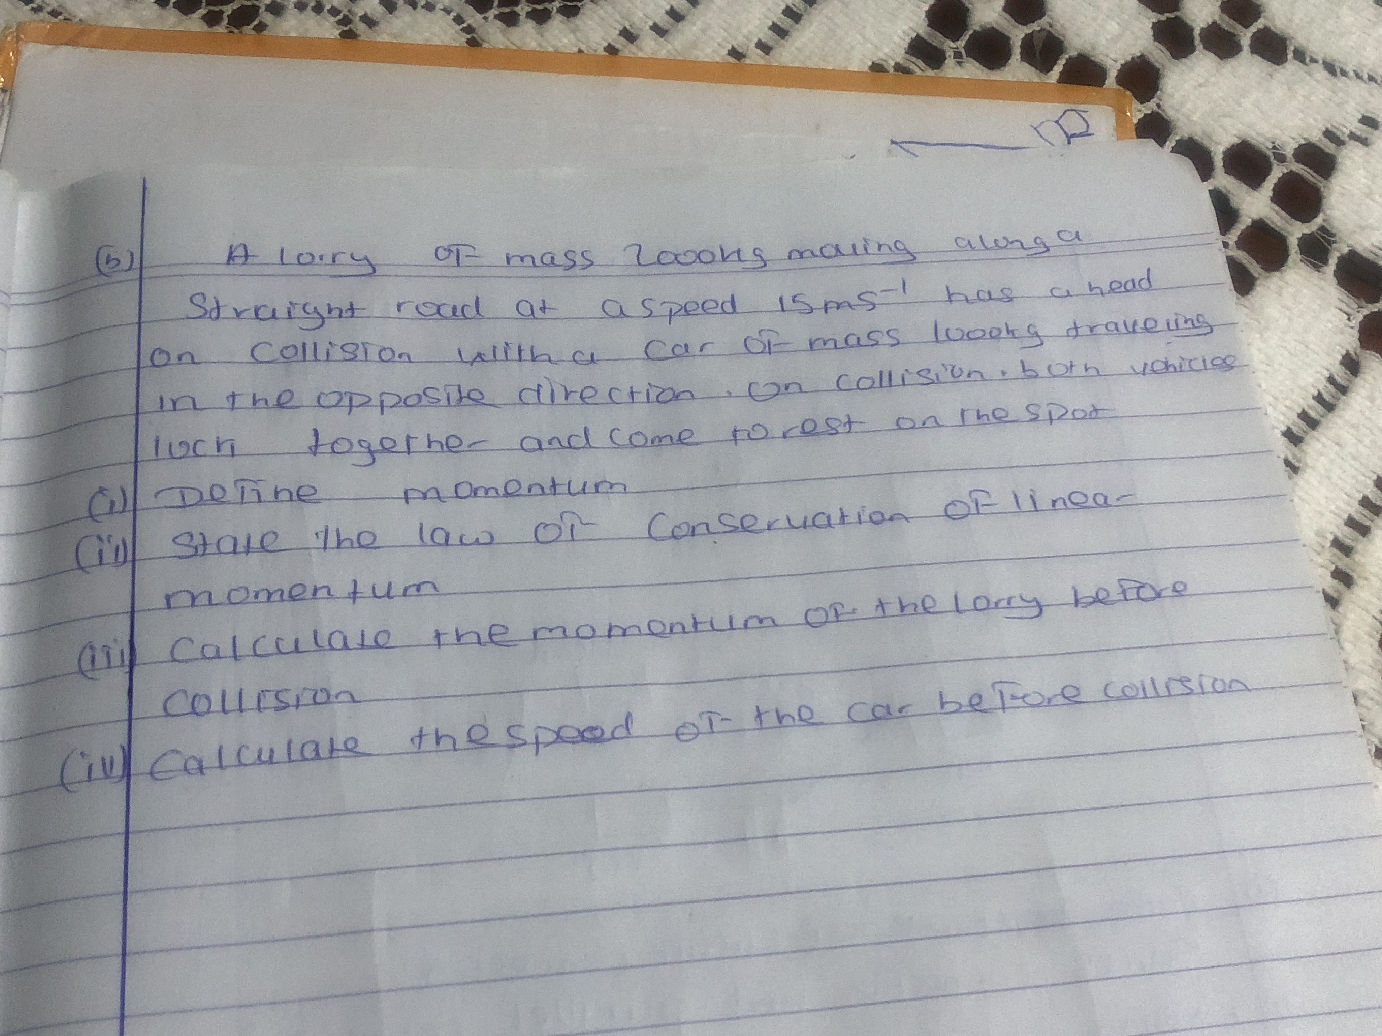 (b) A lorry of mass 2000kg moving along a
Straight road at a speed 15ms⁻¹ has a head
on collision with a car of mass 1000kg traveling
in the opposite direction. On collision, both vehicles
lock together and come to rest on the spot
(i) Define momentum
(ii) State the law of Conservation of linear
momentum
(iii) Calculate the momentum of the lorry before
collision
(iv) Calculate the speed of the car before collision